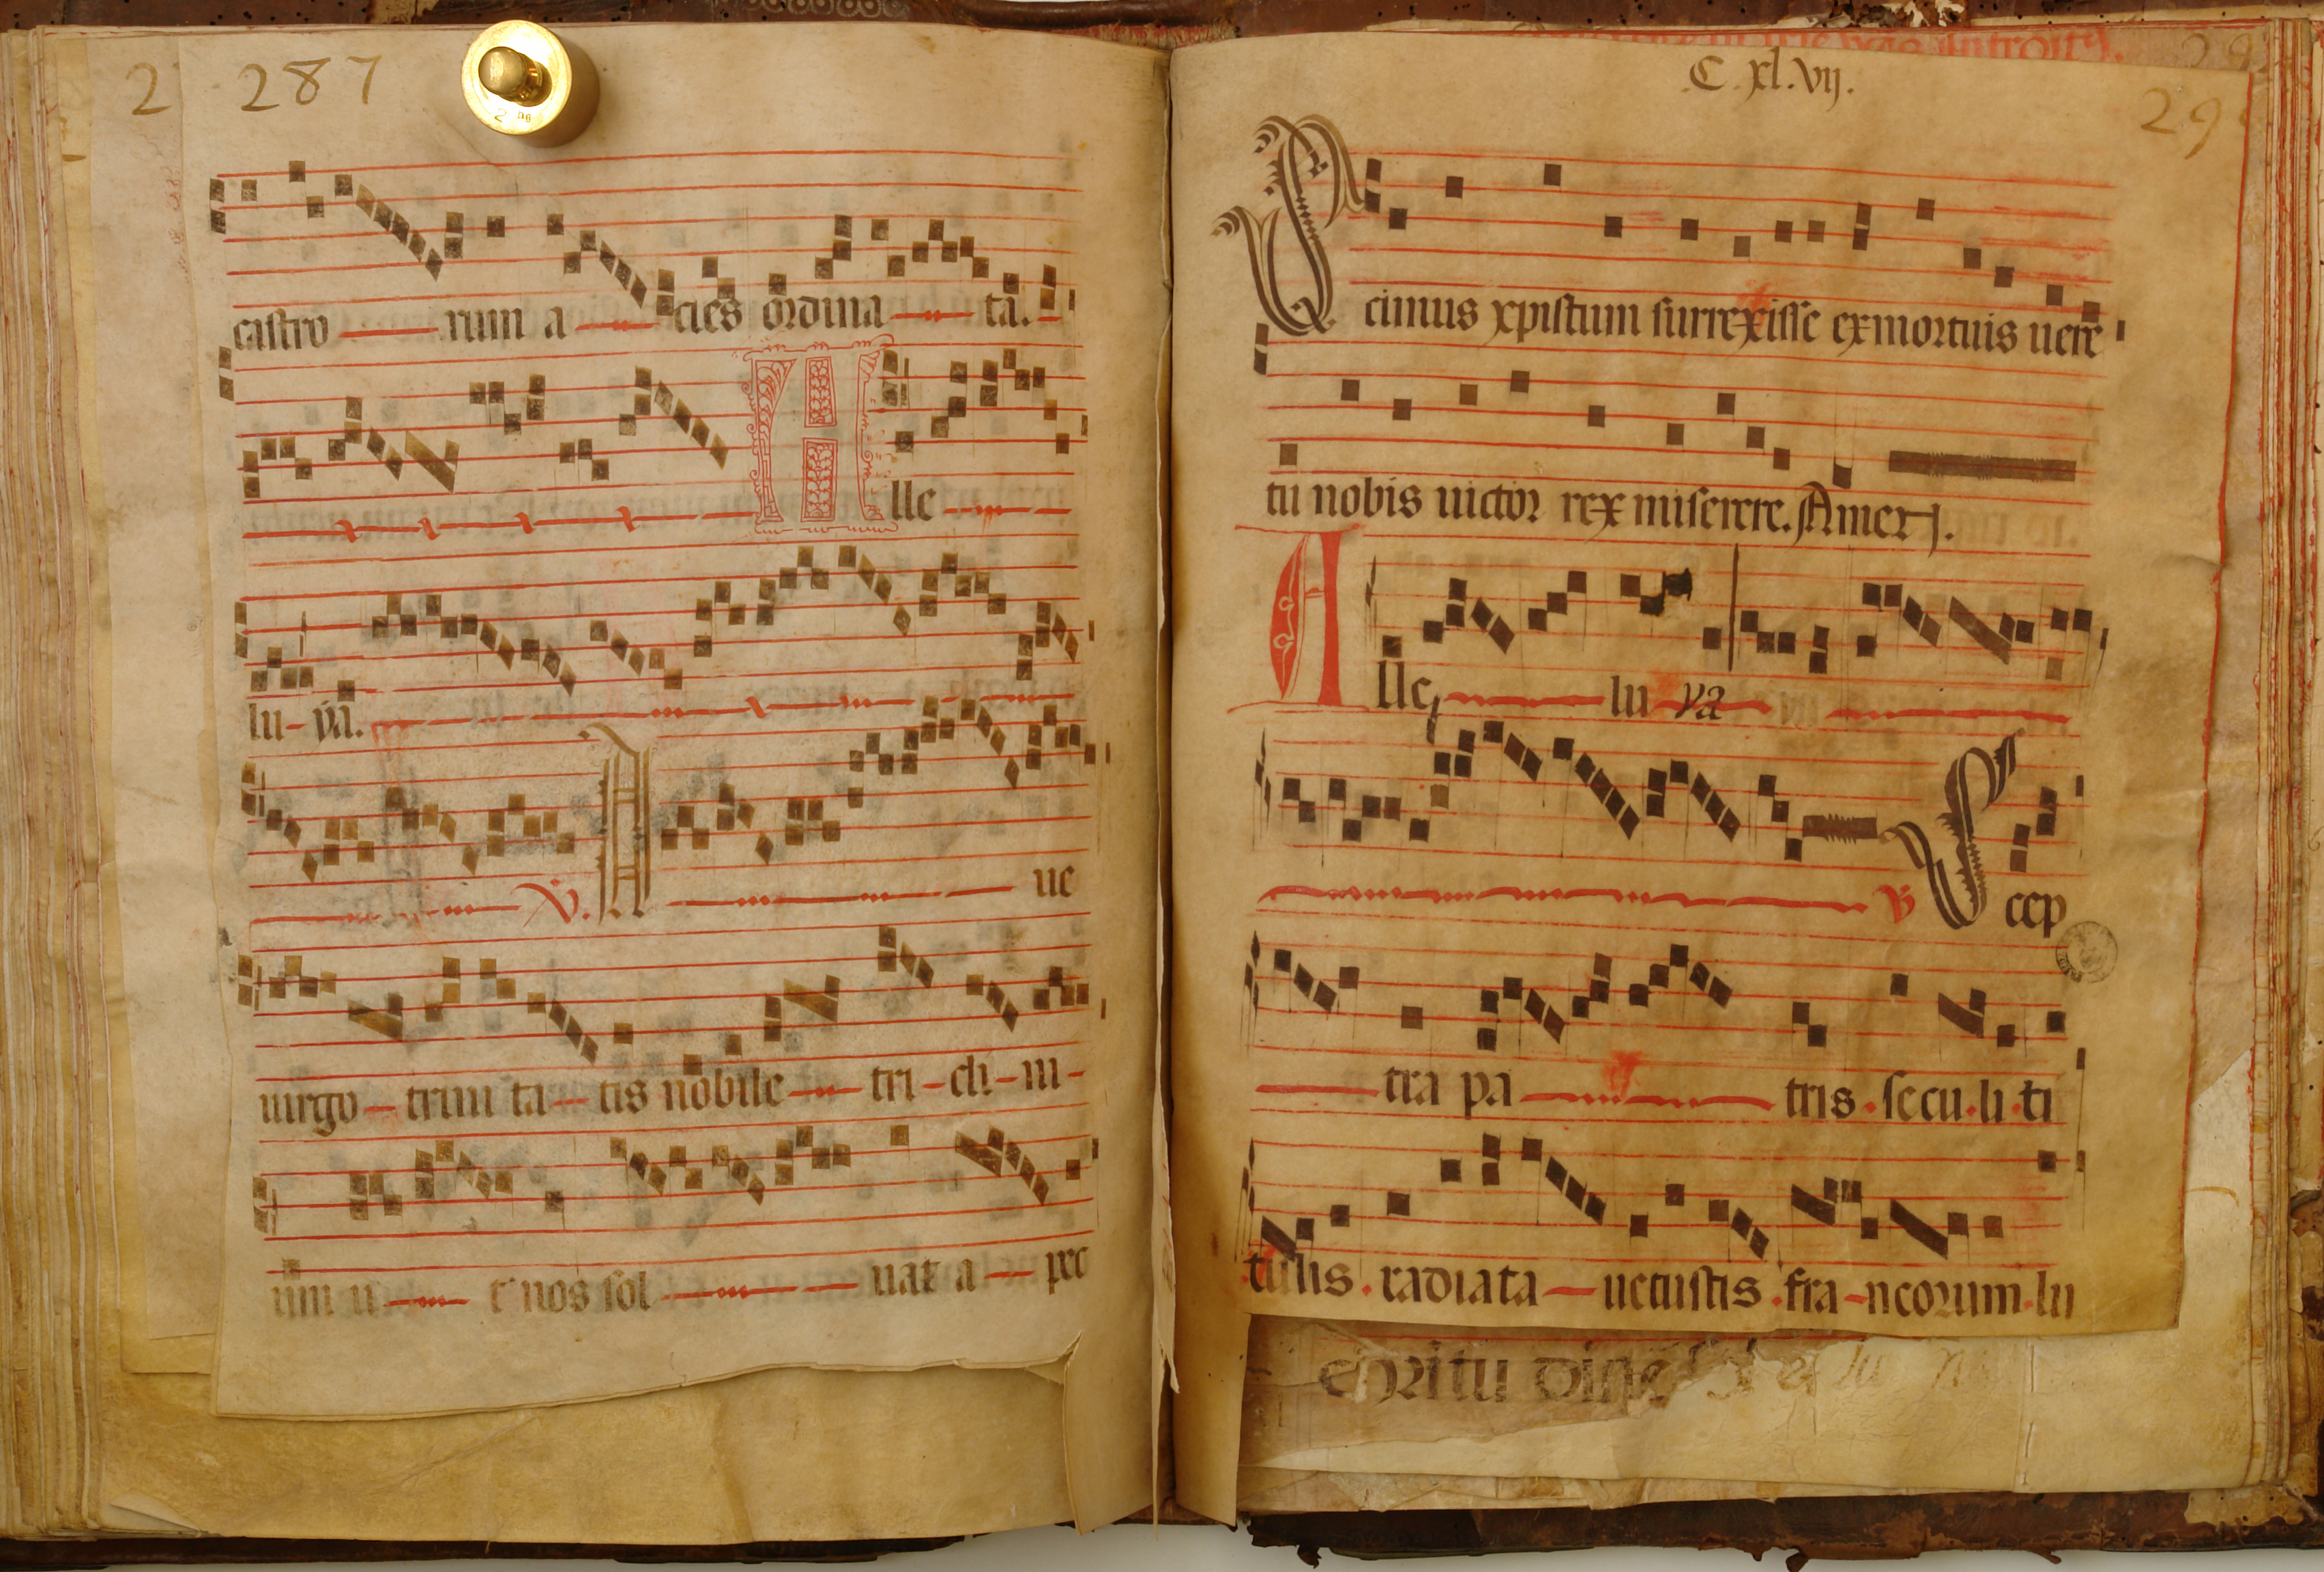 2 287
castro rum a cies ordina ta.
Alle
lu ya.
V. A ue
uirgo trini ta tis nobile tri cli ni
um u t nos sol uat a pec
C.xl.vij.
29
Scimus xpistum surrexisse exmortuis uere
tu nobis uictor rex miserere. Amen.
Alle lu ya
V Scep
tra pa tris. secu.li.ti
tulis. radiata uetustis. fra ncorum.lu